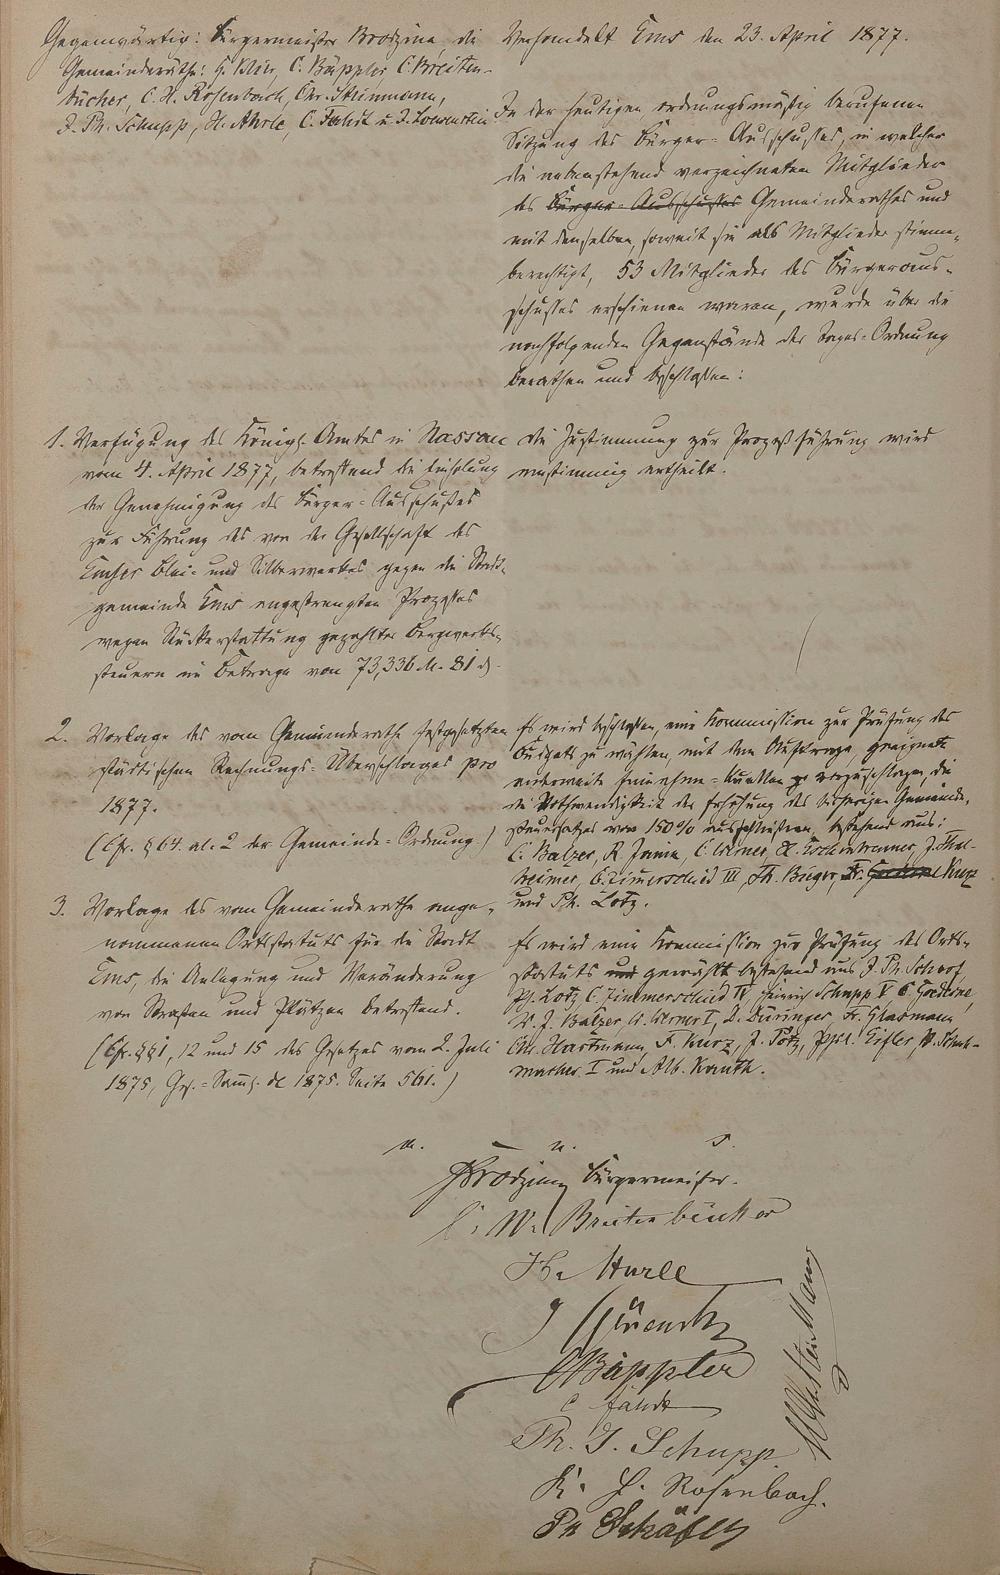 Gegenwärtig: Bürgermeister Brodzina, die
Gemeinderäthe: C. Bäppler, C. Breiten-
bücher, C. H. Rosenbach, Chr. Steinmann,
J. Ph. Schupp, H. Ahrle, C. Fahdt u. J. Löwenstein
Verhandelt Ems den 23. April 1877.
In der heutigen, ordnungsmäßig berufenen
Sitzung des Bürger-Ausschusses, in welcher
die nebenstehend verzeichneten Mitglieder
des Bürger-Ausschusses Gemeinderathes und
mit denselben, soweit sie als Mitglieder stimm-
berechtigt, 53 Mitglieder des Bürgeraus-
schusses erschienen waren, wurde über die
nachfolgenden Gegenstände der Tages-Ordnung
berathen und beschlossen:
1. Verfügung des Königl. Amtes in Nassau
vom 4. April 1877, betreffend die Einholung
der Genehmigung des Bürger-Ausschußes
zur Führung des von der Gesellschaft des
Emser Blei- und Silberwerkes gegen die Stadt-
gemeinde Ems angestrengten Prozesses
wegen Rückerstattung gezahlter Bergwerks-
steuern im Betrage von 73,336 M. 81 d.
Die Zustimmung zur Prozeßführung wird
einstimmig ertheilt.
2. Vorlage des vom Gemeinderathe festgesetzten
städtischen Rechnungs-Überschlages pro
1877.
(Cfr. § 64. al. 2 der Gemeinde-Ordnung.)
Es wird beschlossen, eine Kommission zur Prüfung des
Budgets zu wählen, mit dem Auftrage, geeignete
anderweite Einnahme-Quellen vorzuschlagen, die
die Nothwendigkeit der Erhöhung des bisherigen Gemeinde-
steuersatzes von 150% ausschließen, bestehend aus:
C. Balzer, R. C. Werner, J. Thal-
heimer, C. Zimerschied III, Th. Bieger, Fr. Kurz
und Ph. Lotz.
3. Vorlage des vom Gemeinderathe ange-
nommenen Ortsstatuts für die Stadt
Ems, die Anlegung und Veränderung
von Straßen und Plätzen betreffend.
(Cfr. §§ 1, 12 und 15 des Gesetzes vom 2. Juli
1875, Ges.-Samml. de 1875. Seite 561.)
Es wird eine Kommission zur Prüfung des Orts-
statuts und gewählt bestehend aus J. Ph. Schoof
Ph. Lotz C. Zimmerschied IV, Heinrich Schupp V, C. Goedecke,
W. J. Balzer, W. Werner I, D. Düringer, Fr. Glasmann
Chr. Hartmann, F. Kurz, J. Lotz, Eifler, W. Schuh-
macher I und Alb. Kauth.
a. u. s.
Brodzina Bürgermeister.
C. W. Breitenbücher
C Bäppler
C Fahdt
Ph. J. Schupp
K. H. Rosenbach.
Ph Schäfer